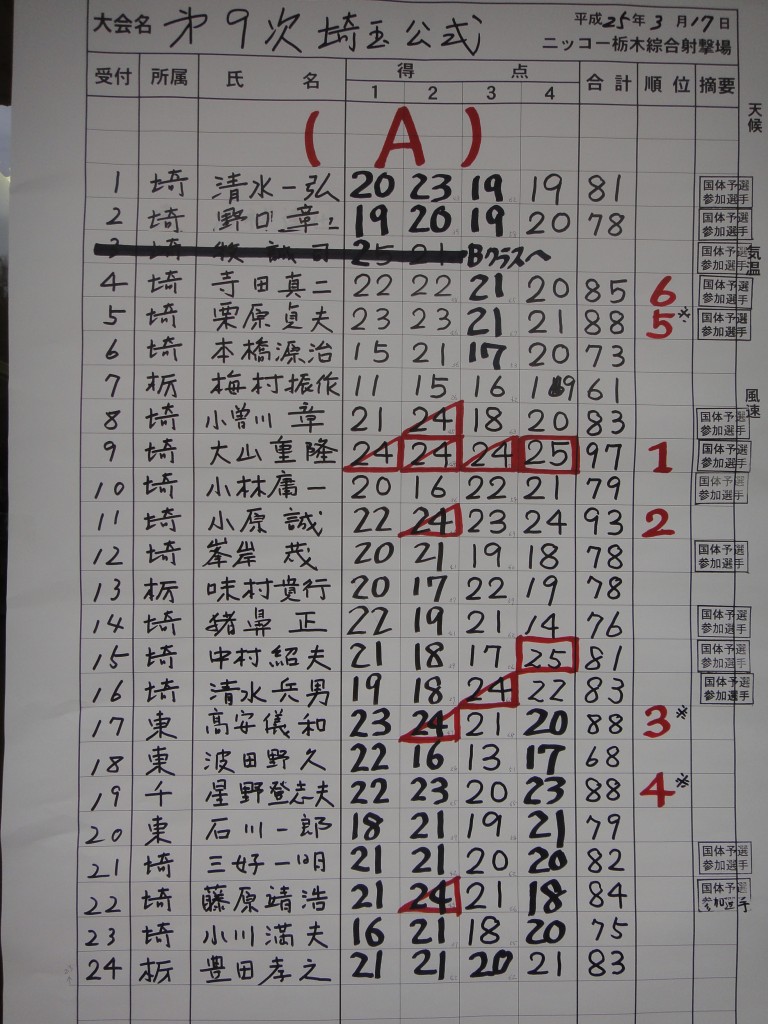 大会名 第9次埼玉公式 平成25年3月17日
ニッコー栃木綜合射撃場
受付 所属 氏 名 得 点 合計 順位 摘要
1 2 3 4
天候
(A)
1 埼 清水一弘 20 23 19 19 81 国体予選 参加選手
2 埼 野口章 19 20 19 20 78 国体予選 参加選手
3 埼 誠司 25 21 Bクラスへ 国体予選 参加選手
気温
4 埼 寺田真二 22 22 21 20 85 6 国体予選 参加選手
5 埼 栗原貞夫 23 23 21 21 88 5※ 国体予選 参加選手
6 埼 本橋源治 15 21 17 20 73
7 栃 梅村振作 11 15 16 19 61
風速
8 埼 小曽川章 21 24 18 20 83 国体予選 参加選手
9 埼 大山重隆 24 24 24 25 97 1 国体予選 参加選手
10 埼 小林庸一 20 16 22 21 79 国体予選 参加選手
11 埼 小原誠 22 24 23 24 93 2
12 埼 峯岸茂 20 21 19 18 78 国体予選 参加選手
13 栃 味村覚行 20 17 22 19 78
14 埼 猪鼻正 22 19 21 14 76 国体予選 参加選手
15 埼 中村紹夫 21 18 17 25 81 国体予選 参加選手
16 埼 清水兵男 19 18 24 22 83 国体予選 参加選手
17 東 高安儀和 23 24 21 20 88 3※
18 東 波田野久 22 16 13 17 68
19 千 星野登志夫 22 23 20 23 88 4※
20 東 石川一郎 18 21 19 21 79
21 埼 三好一明 21 21 20 20 82 国体予選 参加選手
22 埼 藤原靖浩 21 24 21 18 84 国体予選 参加選手
23 埼 小川満夫 16 21 18 20 75
24 栃 豊田孝之 21 21 20 21 83